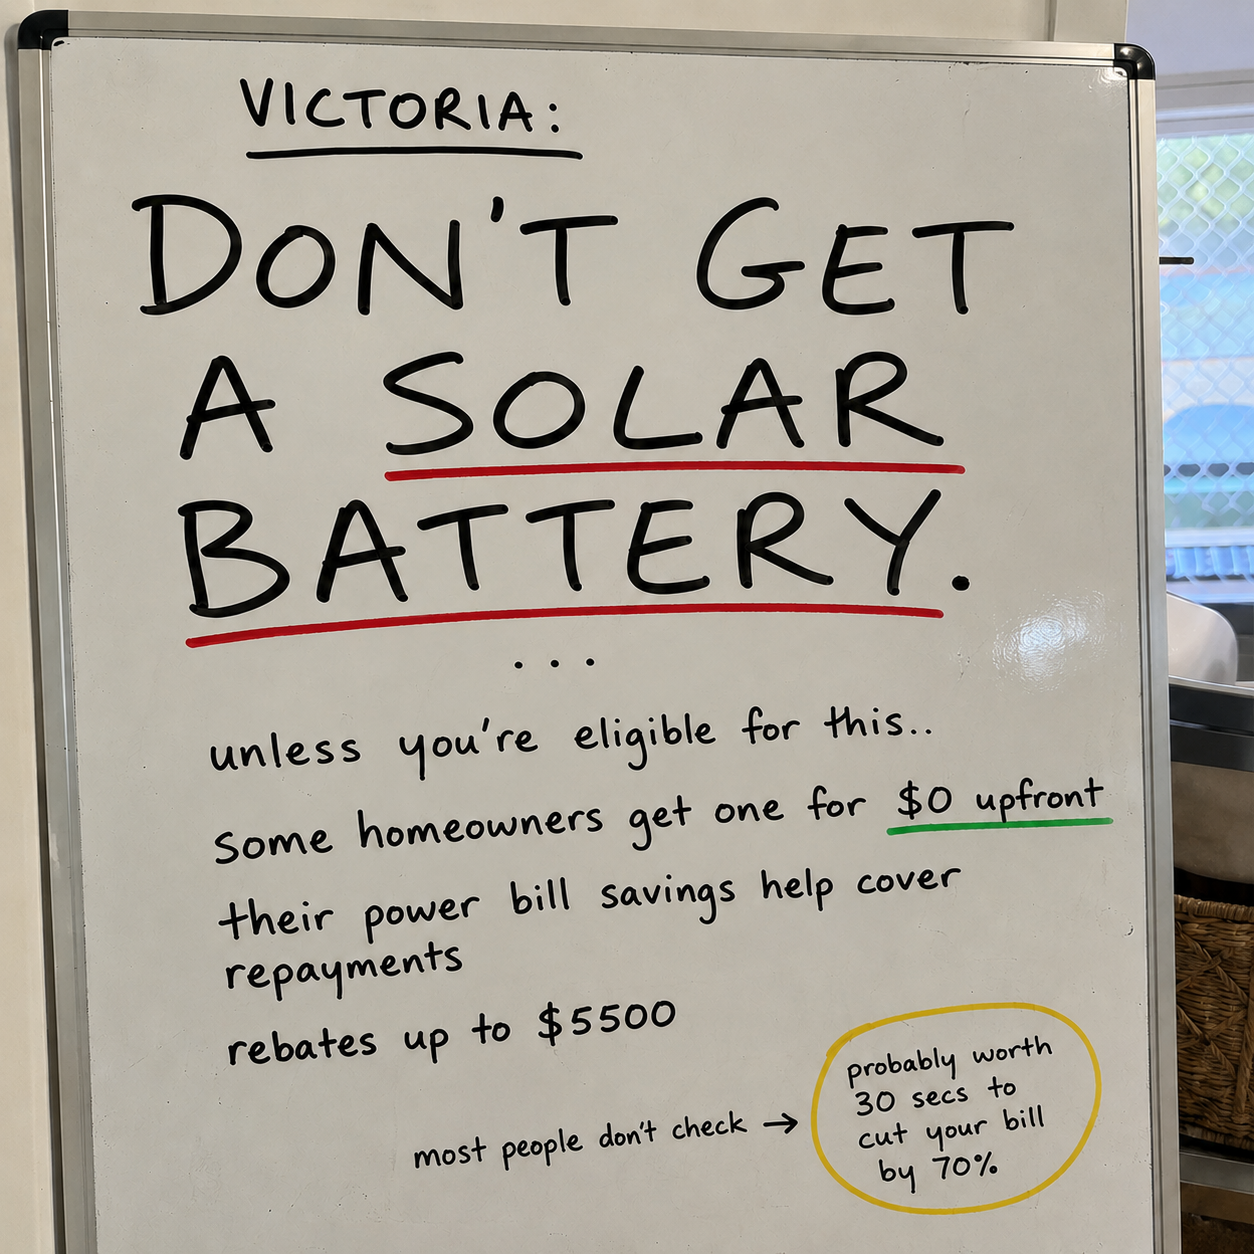 VICTORIA:
DON'T GET
A SOLAR
BATTERY.
...
unless you're eligible for this..
some homeowners get one for $0 upfront
their power bill savings help cover
repayments
rebates up to $5500
most people don't check →
probably worth
30 secs to
cut your bill
by 70%